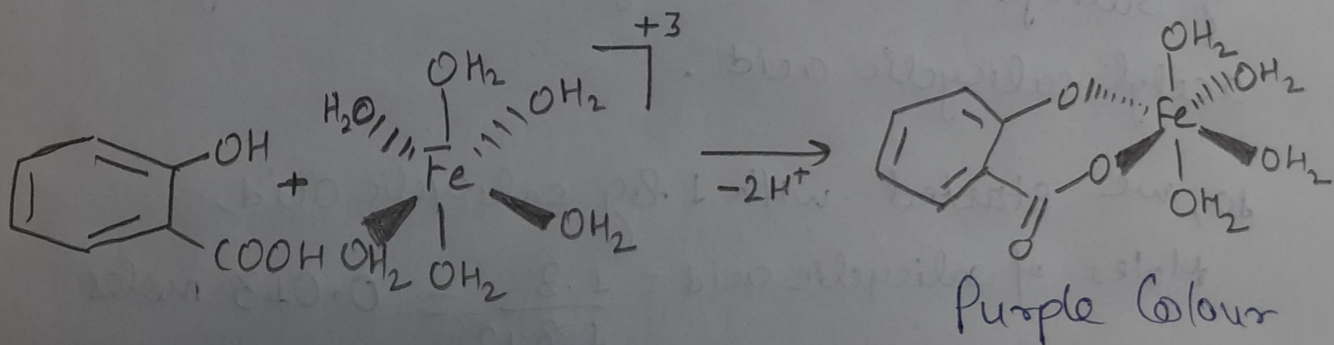 OH
COOH
+
H₂O
OH₂
OH₂
Fe
OH₂
OH₂
OH₂
+3
-2H⁺
O
O
O
Fe
OH₂
OH₂
OH₂
OH₂
Purple Colour